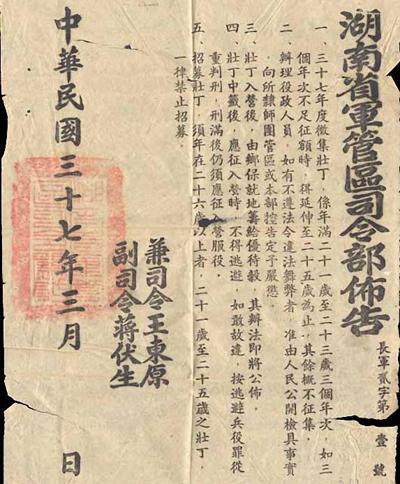 湖南省軍管區司令部佈告
長軍貳字第壹號
一、三十七年度徵集壯丁，係年滿二十一歲至二十三歲三個年次，如三
個年次不足征額時，得延伸至二十五歲為止，其餘概不征集，
二、辦理役政人員，如有不遵法令違法舞弊者，准由人民公開檢具事實
，向所隸師團管區或本部控告定予嚴懲，
三、壯丁入營後，由鄉保就地籌給優待穀，其辦法即將公佈，
四、壯丁中籤後，應征入營時，不得逃避，如敢故違，按逃避兵役罪從
重判刑，刑滿後仍須應征入營服役，
五、招募壯丁，須年在二十六歲以上者，二十一歲至二十五歲之壯丁，
一律禁止招募
兼司令王東原
副司令蔣伏生
中華民國三十七年三月　日